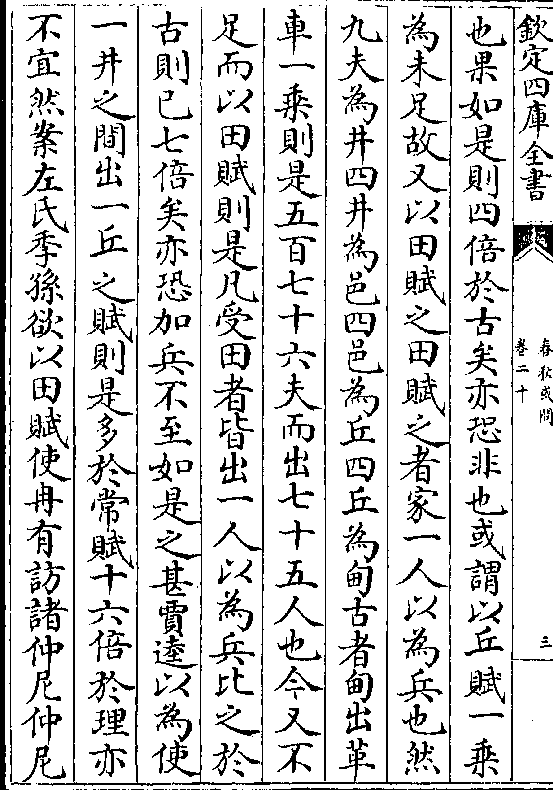 欽定四庫全書
春秋或問
卷二十
三
也果如是則四倍於古矣亦恐非也或謂以丘賦一乗
為未足故又以田賦之田賦之者家一人以為兵也然
九夫為井四井為邑四邑為丘四丘為甸古者甸出革
車一乗則是五百七十六夫而出七十五人也今又不
足而以田賦則是凡受田者皆出一人以為兵比之於
古則已七倍矣亦恐加兵不至如是之甚賈逵以為使
一井之間出一丘之賦則是多於常賦十六倍於理亦
不宜然案左氏季孫欲以田賦使冉有訪諸仲尼仲尼